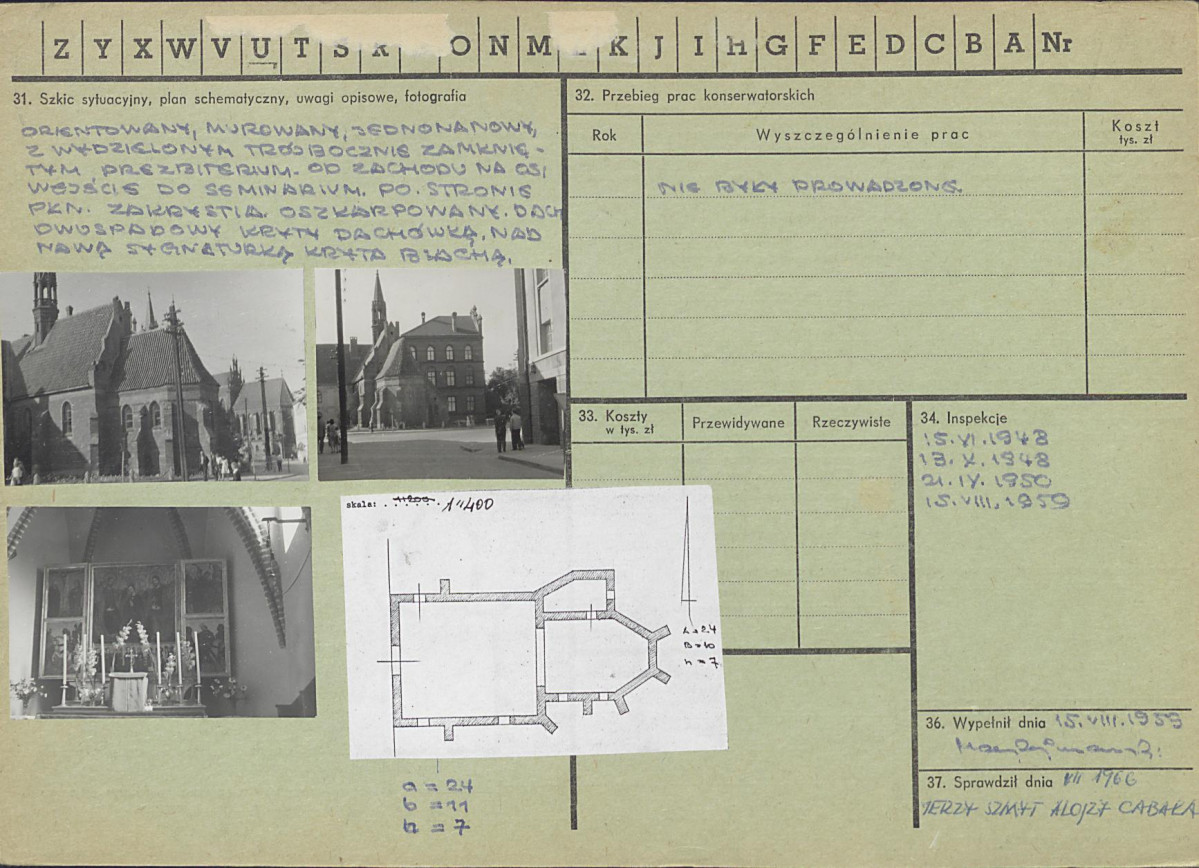 Z Y X W V U T S R O N M K J I H G F E D C B A Nr
31. Szkic sytuacyjny, plan schematyczny, uwagi opisowe, fotografia
ORIENTOWANY, MUROWANY, JEDNONAWOWY,
Z WYDZIELONYM TRÓJBOCZNIE ZAMKNIĘ-
TYM PREZBITERIUM. OD ZACHODU NA OSI
WEJŚCIE DO SEMINARIUM. PO. STRONIE
PŁN. ZAKRYSTIA. OSZKARPOWANY. DACH
DWUSPADOWY KRYTY DACHÓWKĄ. NAD
NAWĄ SYGNATURKA KRYTA BLACHĄ.
skala: 1:200 1:400
h = 7
a = 24
b = 11
h = 7
32. Przebieg prac konserwatorskich
Rok Wyszczególnienie prac Koszt
tys. zł
NIE BYŁY PROWADZONE.
33. Koszty
w tys. zł Przewidywane Rzeczywiste
34. Inspekcje
15. VI. 1948
13. X. 1948
21. IV. 1950
15. VIII. 1959
36. Wypełnił dnia 15. VIII. 1959
37. Sprawdził dnia VII 1966
JERZY SZMYT ALOJZY CABAŁA